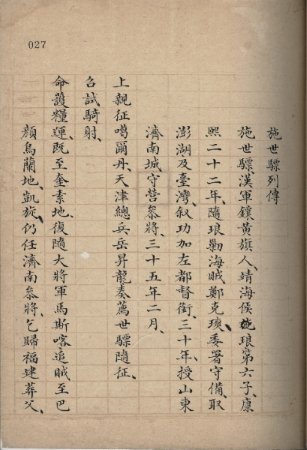 027
施世驃列傳
施世驃漢軍鑲黃旗人靖海侯施琅第六子康
熙二十二年隨琅勦海賊鄭克塽委署守備取
澎湖及臺灣敘功加左都督銜三十年授山東
濟南城守營參將三十五年二月
上親征噶爾丹天津總兵岳昇龍奏薦世驃隨征
召試騎射
命護糧運既至奎素地復隨大將軍馬斯喀追賊至巴
顏烏蘭地凱旋仍任濟南參將乞歸福建葬父